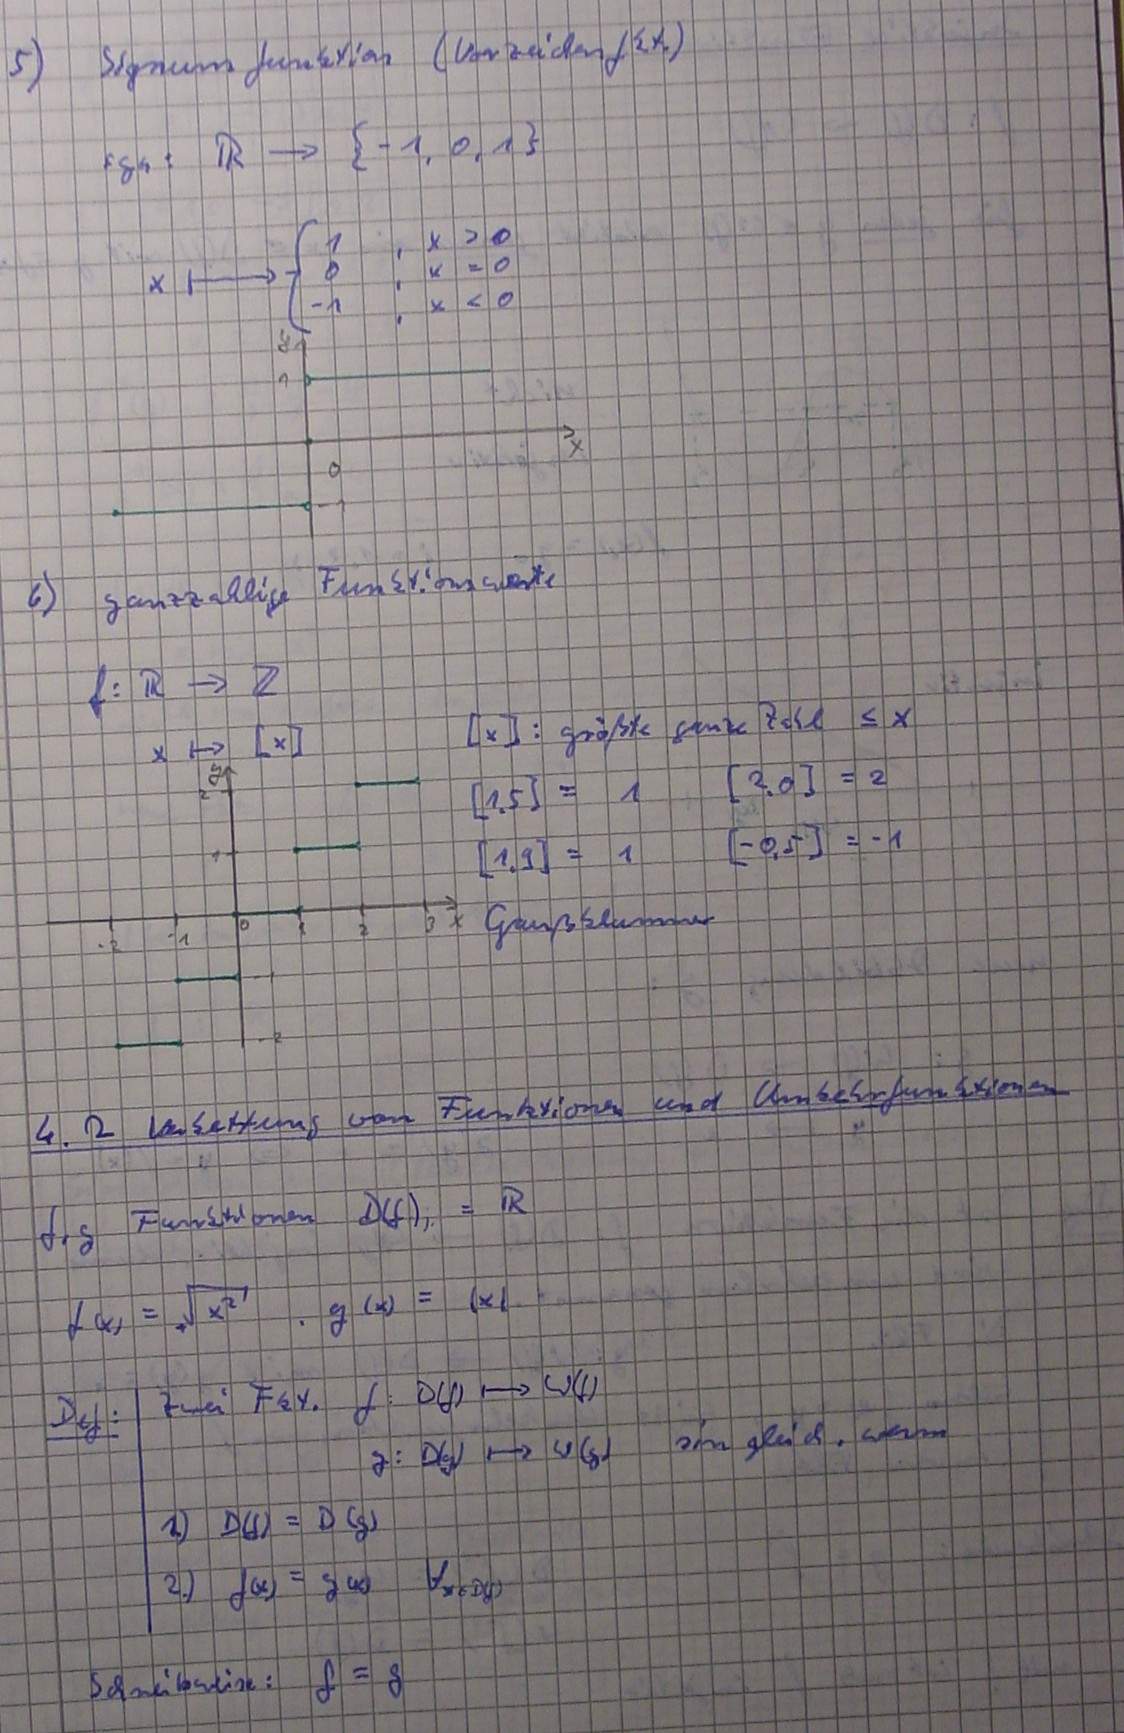 5) Signumfunktion (Vorzeichenfkt.)
sgn: ℝ → {-1, 0, 1}
x ↦ { 1 , x > 0
0 , x = 0
-1 , x < 0
y
1
x
0
-1
6) ganzzahlige Funktionswerte
f: ℝ → ℤ
x ↦ [x] [x]: größte ganze Zahl ≤ x
y
2 [1,5] = 1 [2,0] = 2
1 [1,9] = 1 [-0,5] = -1
-2 -1 0 1 2 3 x Gaußklammer
-1
-2
4.2 Verkettung von Funktionen und Umkehrfunktionen
f, g Funktionen D(f), = ℝ
f(x) = +√x² , g(x) = |x|
Def: Zwei Fkt. f: D(f) ↦ W(f)
g: D(g) ↦ W(g) sin gleich, wenn
1.) D(f) = D(g)
2.) f(x) = g(x) ∀x∈D(f)
Schreibweise: f = g